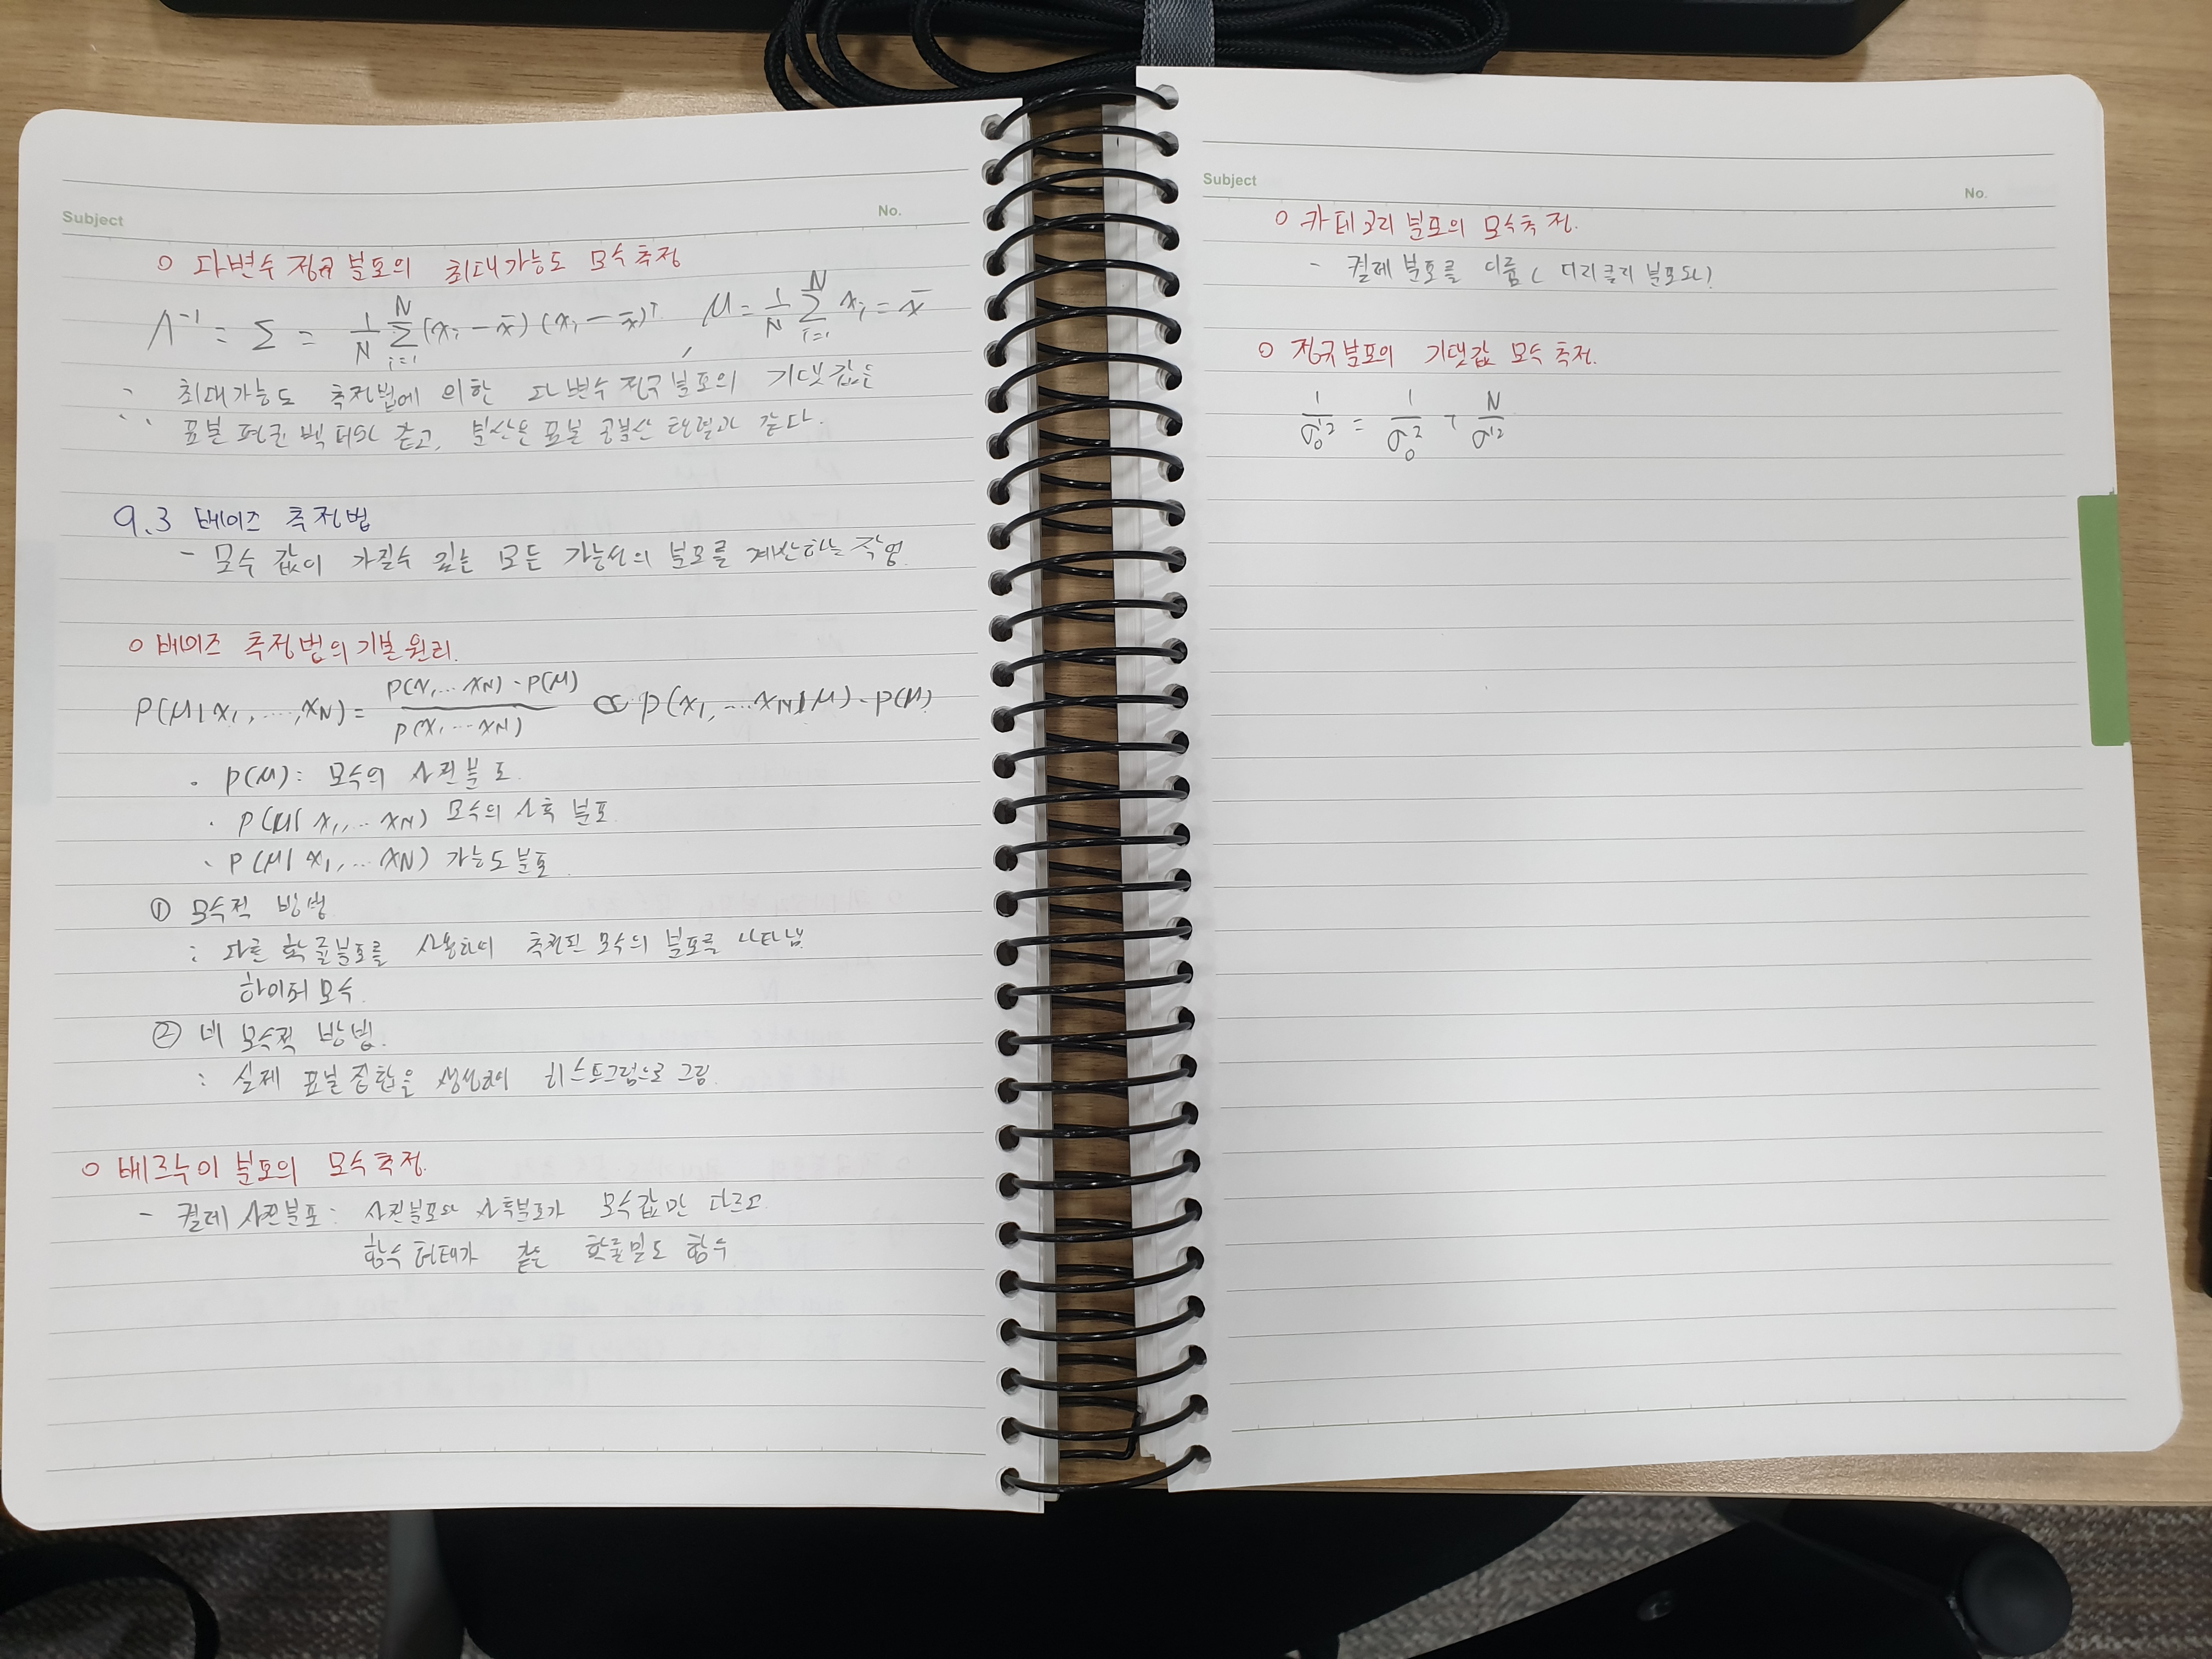 Subject
No.
○ 다변수 정규분포의 최대가능도 모수추정
Λ⁻¹ = Σ = 1/N Σ_{i=1}^{N} (x_i − x̄)(x_i − x̄)ᵀ , μ = 1/N Σ_{i=1}^{N} x_i = x̄
∴ 최대가능도 추정법에 의한 다변수 정규분포의 기댓값은
표본 평균 벡터와 같고, 분산은 표본 공분산 행렬과 같다.
9.3 베이즈 추정법
- 모수 값이 가질수 있는 모든 가능성의 분포를 계산하는 작업
○ 베이즈 추정법의 기본원리.
P(μ|x₁,...,x_N) = P(x₁...x_N)·P(μ) / P(x₁...x_N) ∝ P(x₁,...x_N|μ)·P(μ)
· P(μ): 모수의 사전분포.
· P(μ|x₁,...x_N) 모수의 사후 분포
· P(μ|x₁,...x_N) 가능도분포
① 모수적 방법
: 다른 확률분포를 사용하여 추정된 모수의 분포를 나타냄
하이퍼모수.
② 비 모수적 방법.
: 실제 표본집합을 생성하여 히스토그램으로 그림.
○ 베르누이 분포의 모수추정.
- 켤레 사전분포: 사전분포와 사후분포가 모수값만 다르고
함수 형태가 같은 확률밀도 함수
Subject
No.
○ 카테고리 분포의 모수추정.
- 켤레 분포를 이룸 ( 디리클리 분포와)
○ 정규분포의 기댓값 모수 추정.
1/σ₀'² = 1/σ₀² + N/σ²